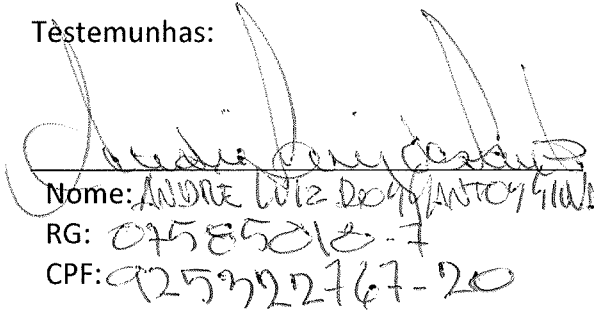 Testemunhas:
Nome: ANDRE LUIZ DOS SANTOS
RG: 07585818-7
CPF: 925322767-20